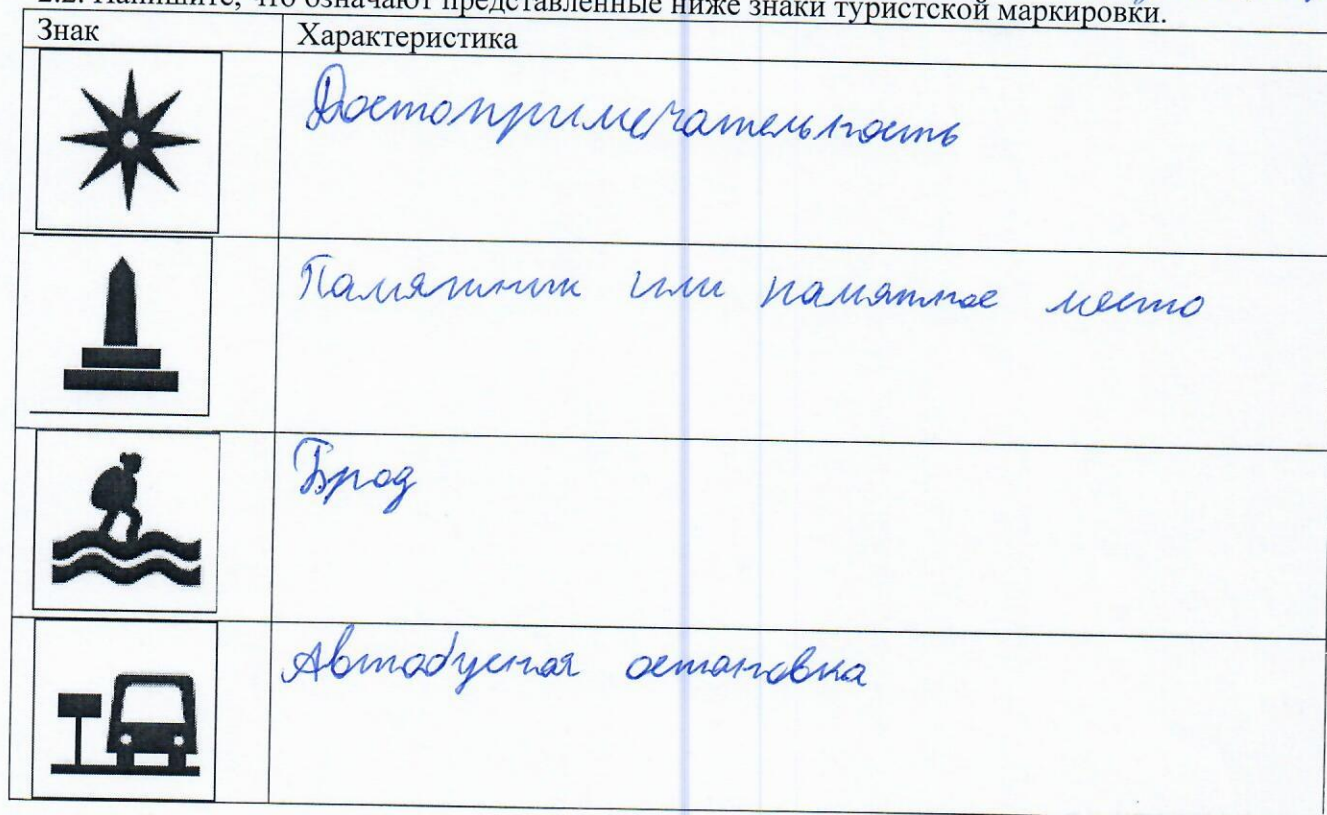 2.2. Напишите, что означают представленные ниже знаки туристской маркировки.
Знак Характеристика
Достопримечательность
Памятник или памятное место
Брод
Автобусная остановка